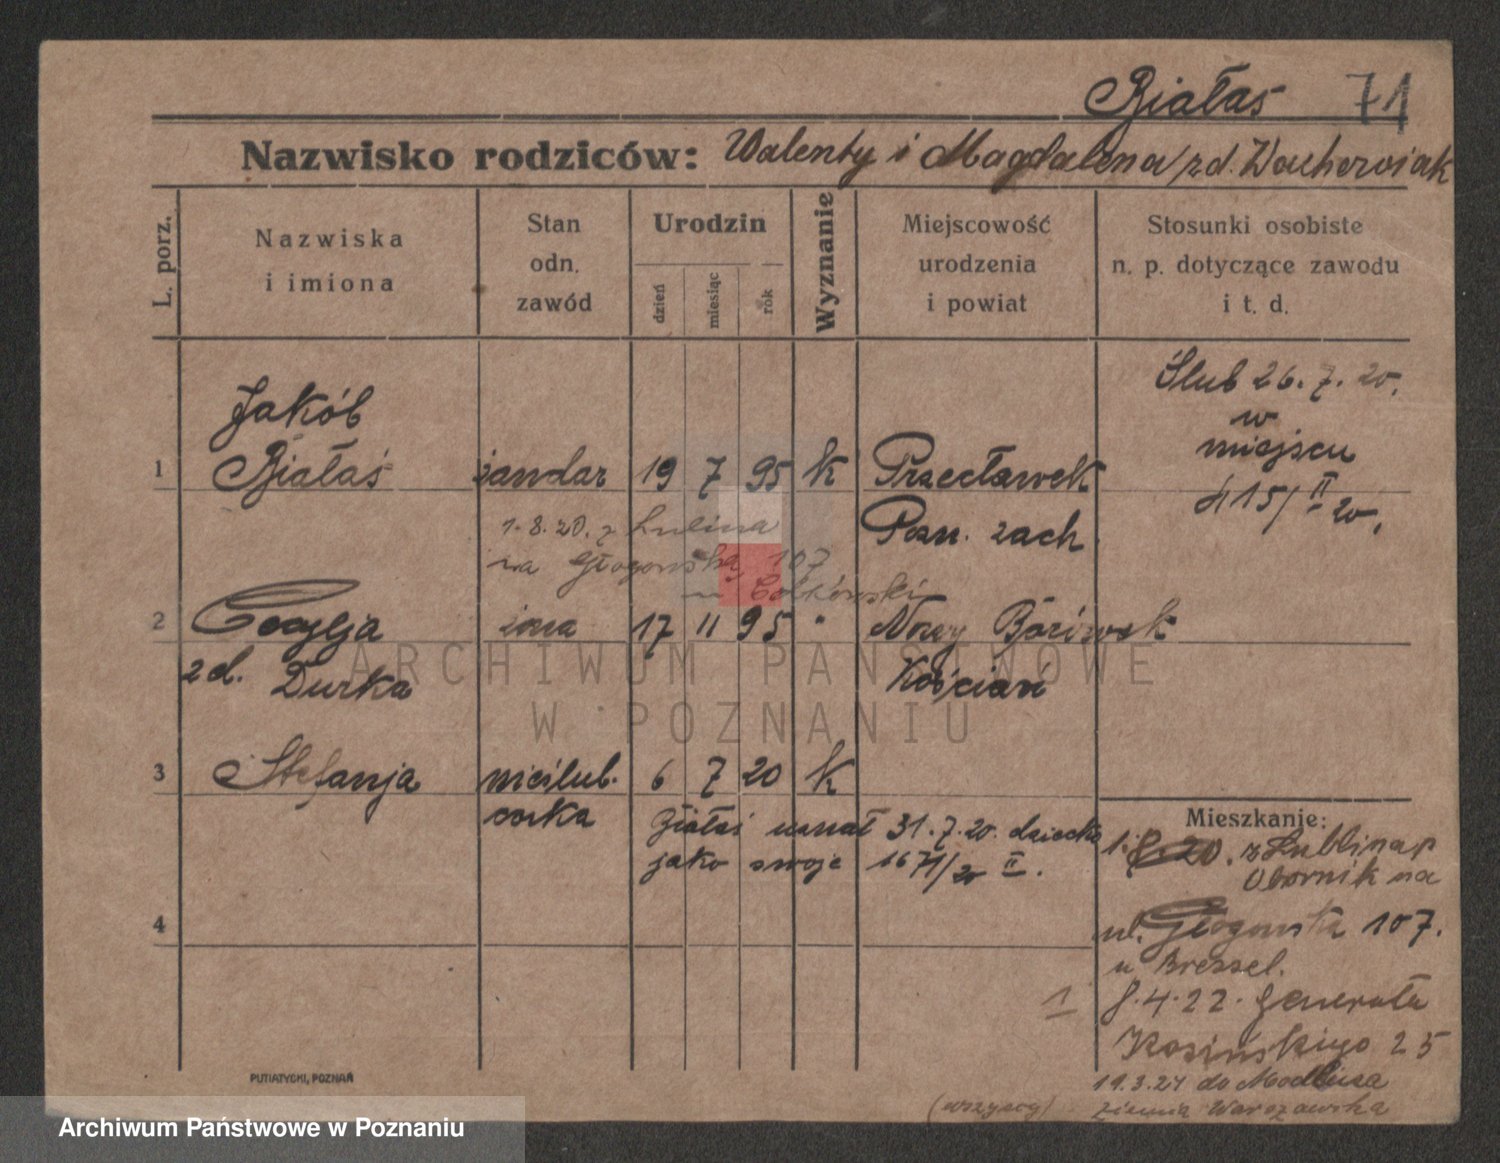 Białas 71
Nazwisko rodziców: Walenty i Magdalena zd. Wacherviak
L. porz.
Nazwiska
i imiona
Stan
odn.
zawód
Urodzin
dzień
miesiąc
rok
Wyznanie
Miejscowość
urodzenia
i powiat
Stosunki osobiste
n. p. dotyczące zawodu
i t. d.
Ślub 26. 7. 20.
w
miejscu
415/II 20.
Jakób
1 Białaś żandar 19 7 95 k Przecławek
Pozn. zach.
1. 8. 20. z Lulina
na Głogowską 107
u
2 Cecylja żona 17 11 95 " Nowy Borówek
zd. Durka Kościan
ARCHIWUM PAŃSTWOWE
W POZNANIU
3 Stefanja nieślub. 6 7 20 k
corka
Białaś uznał 31. 7. 20. dziecko
jako swoje 1671/20 II.
4
Mieszkanie:
1. 8. 20. z Lublina p
Obornik na
ul. Głogowska 107.
u Bressel.
1 8. 4. 22. Generała
Kosińskiego 25
19. 3. 24 do Modlina
(wszyscy) ziemia Warszawska
PUTIATYCKI, POZNAŃ
Archiwum Państwowe w Poznaniu